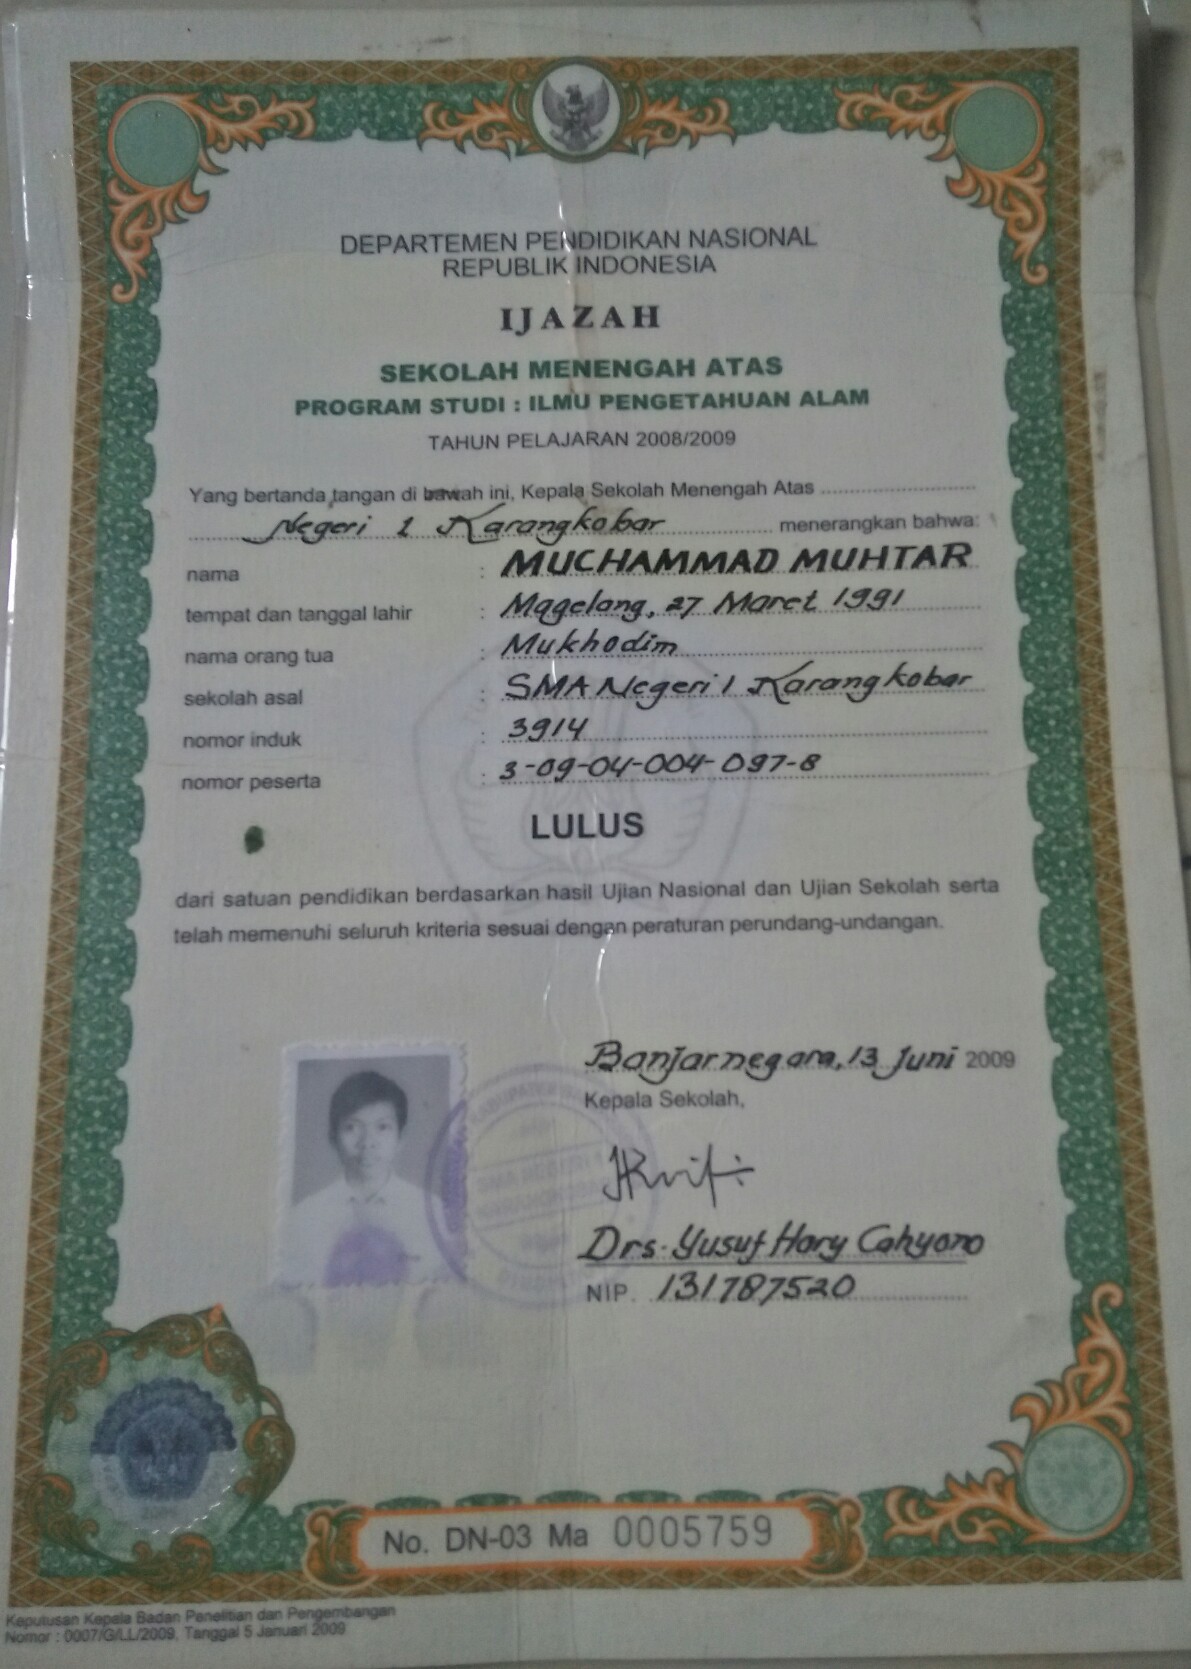 DEPARTEMEN PENDIDIKAN NASIONAL
REPUBLIK INDONESIA
IJAZAH
SEKOLAH MENENGAH ATAS
PROGRAM STUDI : ILMU PENGETAHUAN ALAM
TAHUN PELAJARAN 2008/2009
Yang bertanda tangan di bawah ini, Kepala Sekolah Menengah Atas
Negeri 1 Karangkobar menerangkan bahwa:
nama : MUCHAMMAD MUHTAR
tempat dan tanggal lahir : Magelang, 27 Maret 1991
nama orang tua : Mukhodim
sekolah asal : SMA Negeri 1 Karangkobar
nomor induk : 3914
nomor peserta : 3-09-04-004-097-8
LULUS
dari satuan pendidikan berdasarkan hasil Ujian Nasional dan Ujian Sekolah serta
telah memenuhi seluruh kriteria sesuai dengan peraturan perundang-undangan.
Banjarnegara, 13 Juni 2009
Kepala Sekolah,
Drs. Yusuf Hary Cahyono
NIP. 131787520
No. DN-03 Ma 0005759
Keputusan Kepala Badan Penelitian dan Pengembangan
Nomor : 0007/G/LL/2009, Tanggal 5 Januari 2009